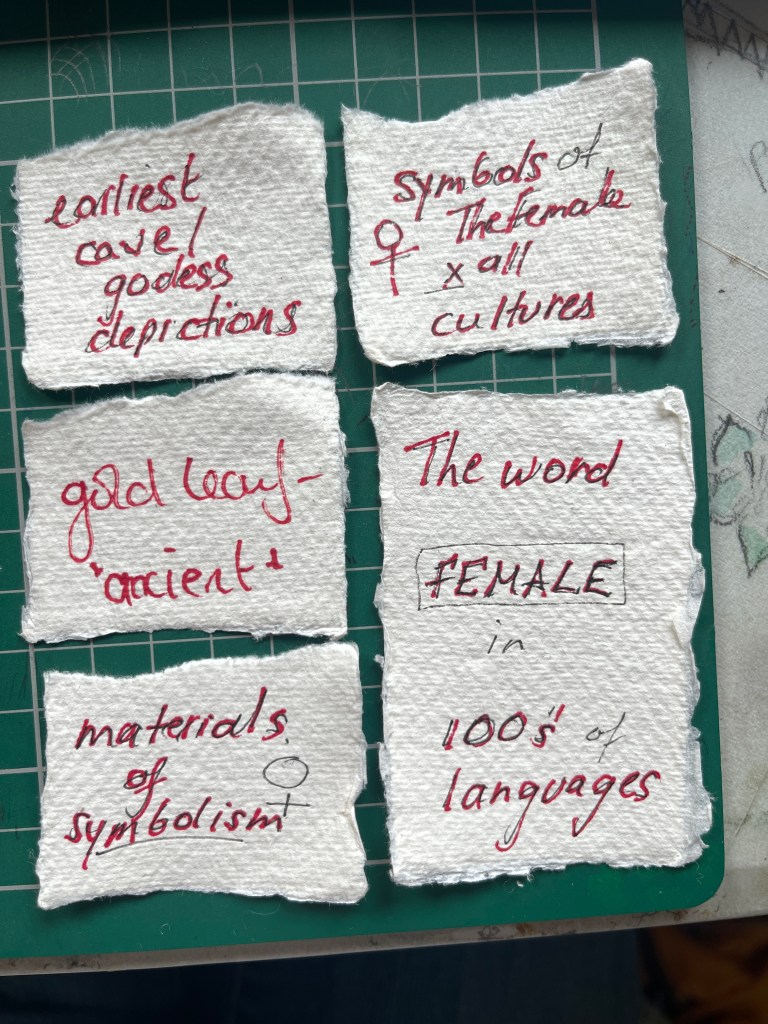 earliest
cave/
godess
depictions
symbols of
The Female
♀ x all
cultures
gold leaf -
"ancient"
The word
FEMALE
in
100's' of
languages
materials
of ♀
symbolism